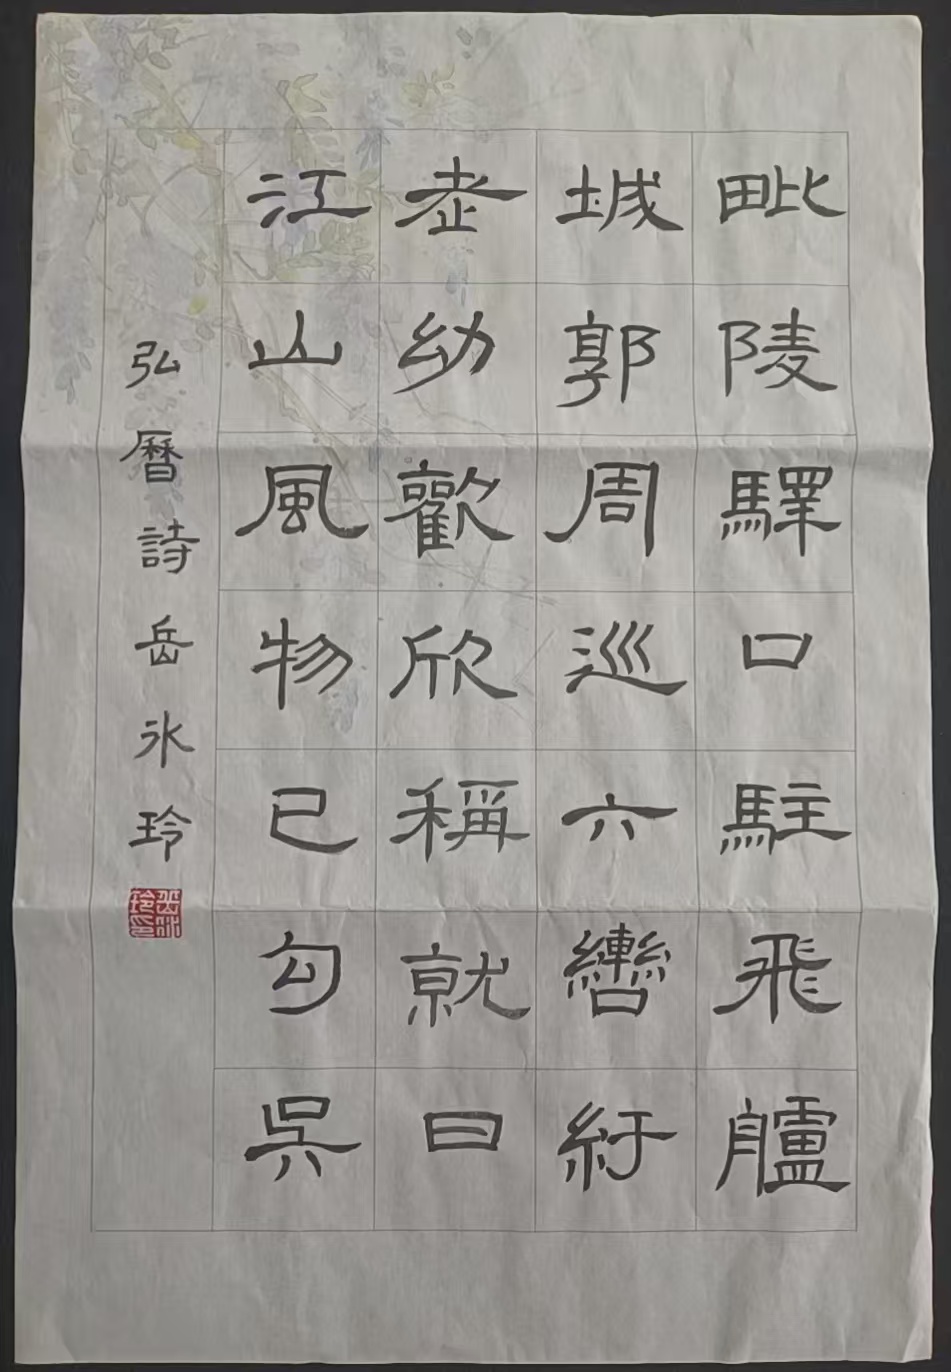 毗陵驛口駐飛艫
城郭周巡六轡紆
老幼歡欣稱就日
江山風物已勾吳
弘曆詩岳冰玲
岳冰玲印